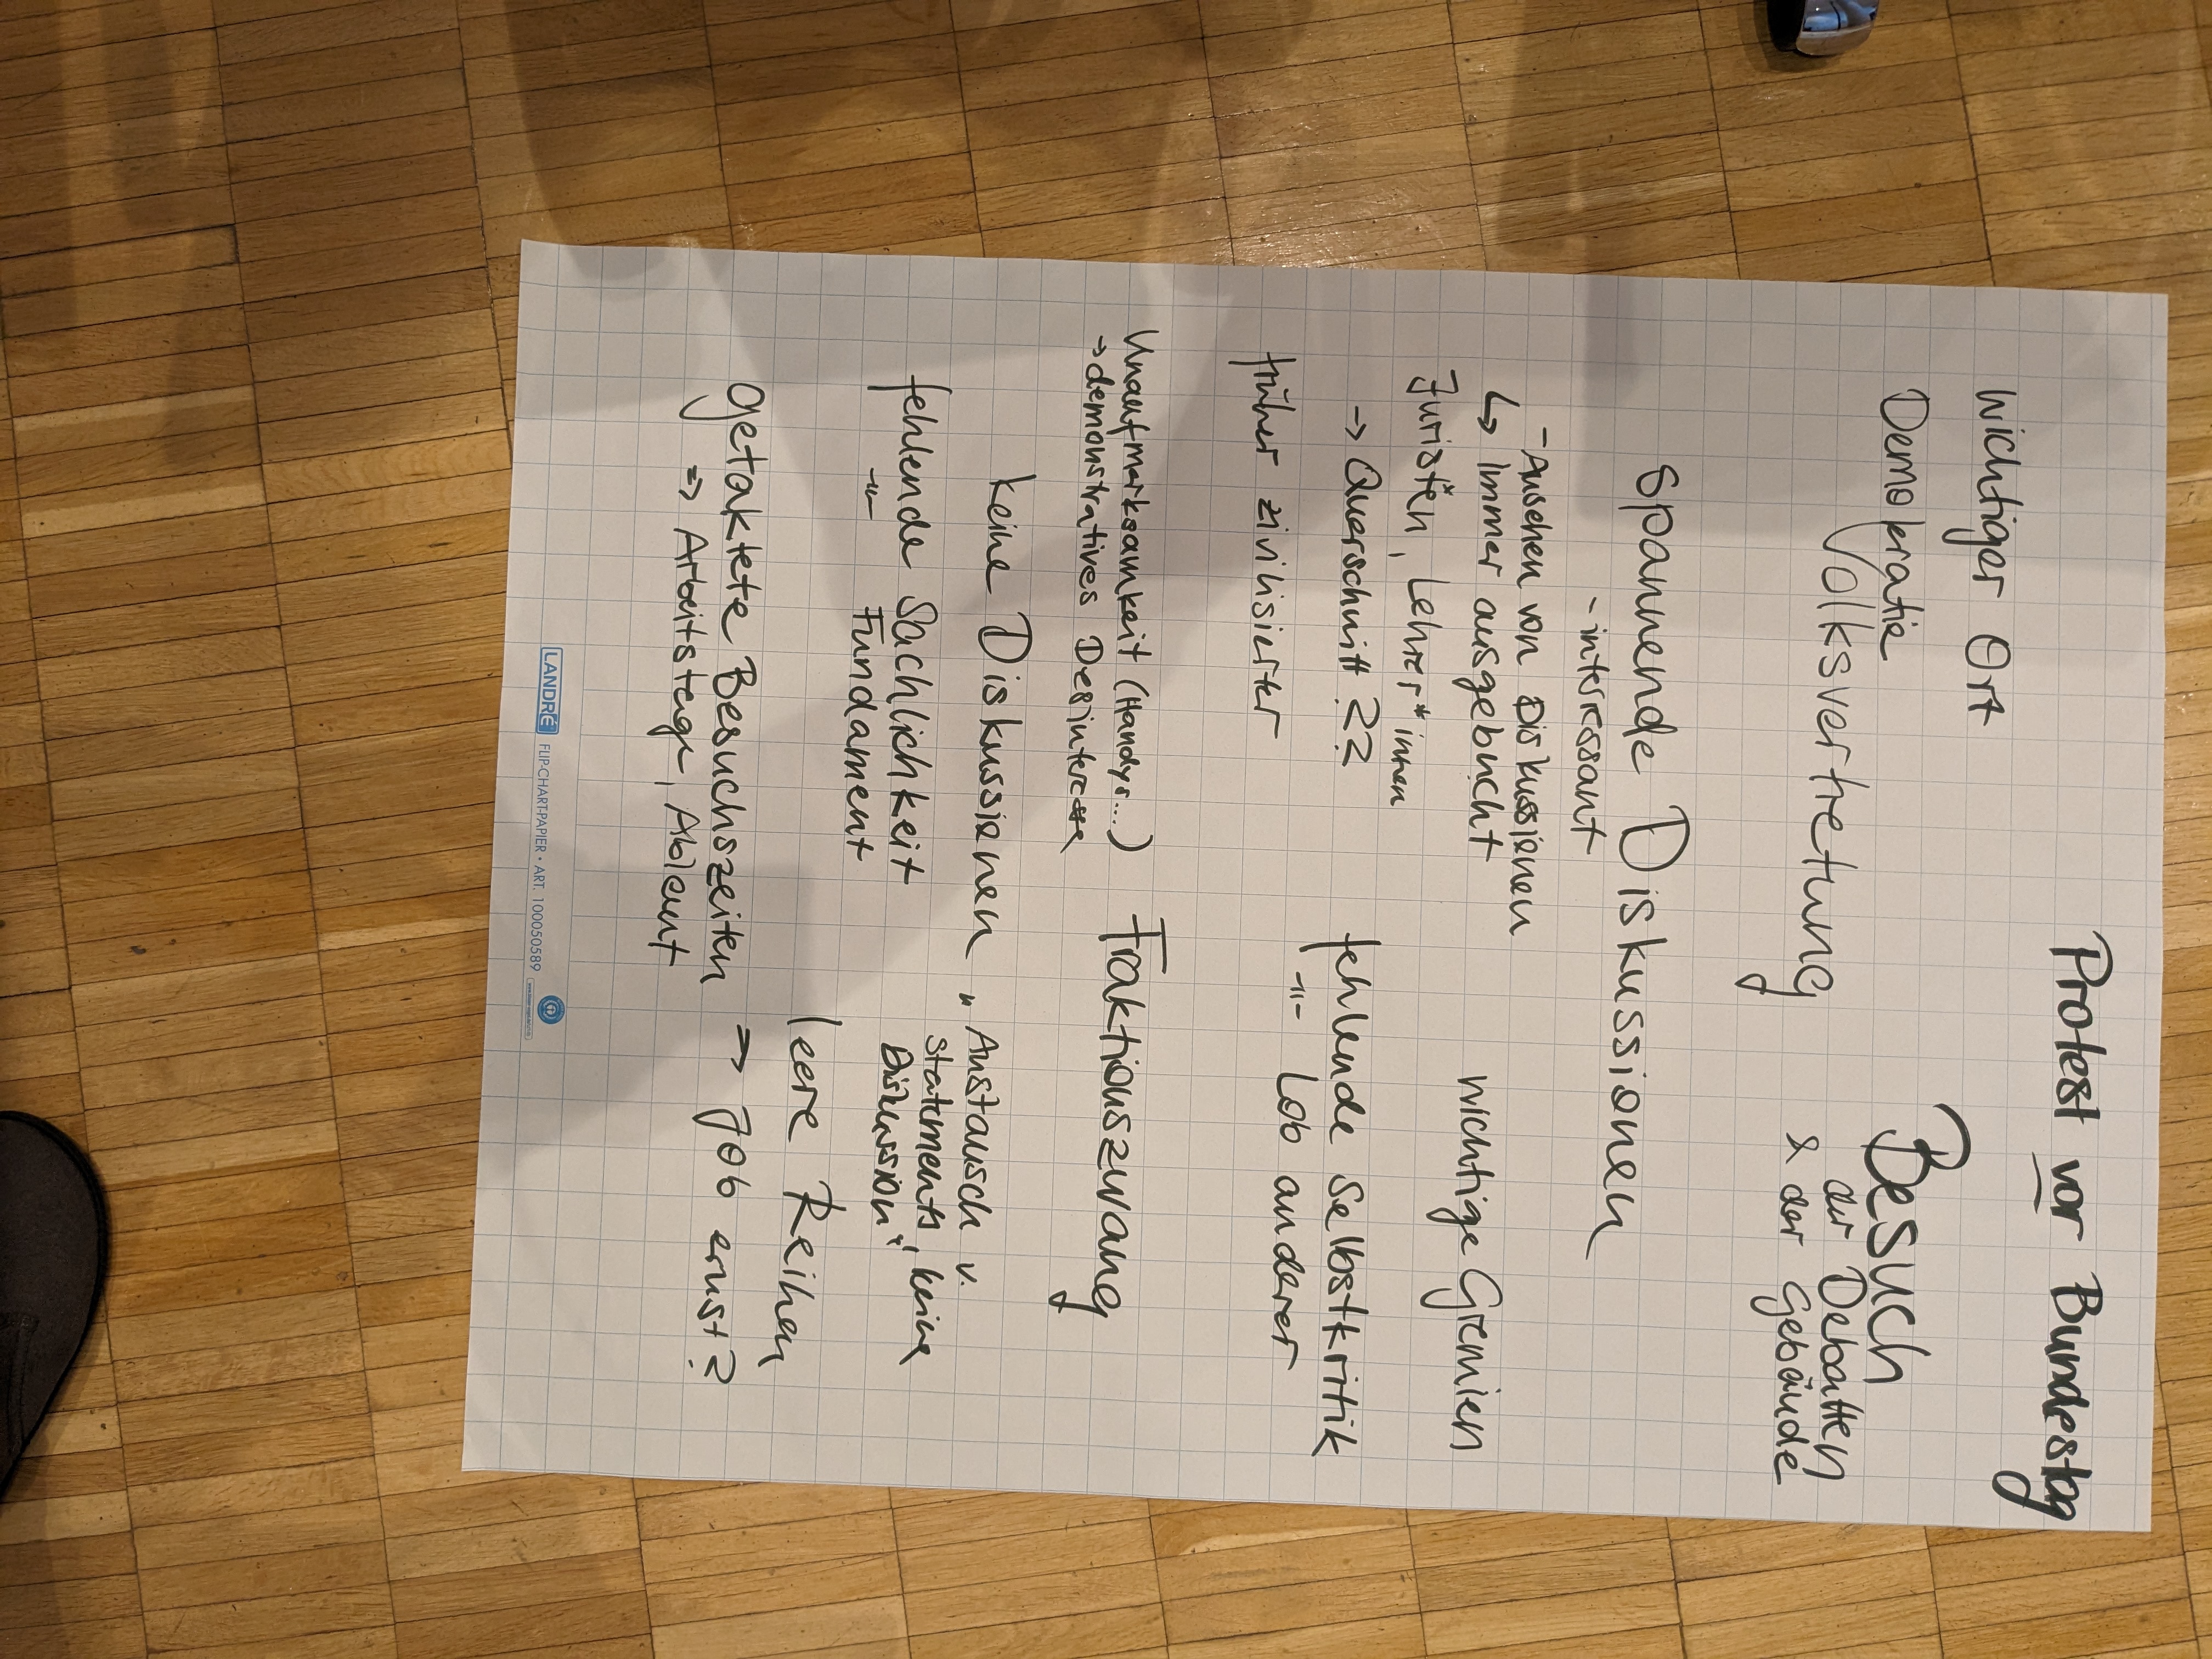 Protest vor Bundestag
Wichtiger Ort
Demokratie
Besuch
der Debatten
& der Gebäude
Volksvertretung
Spannende Diskussionen
- interessant
- Ansehen von Diskussionen
↳ immer ausgebucht
wichtige Gremien
Juristen*, Lehrer*innen
→ Querschnitt ??
fehlende Selbstkritik
-"- Lob anderer
früher zivilisierter
Unaufmerksamkeit (Handys...)
→ demonstratives Desinteresse
Fraktionszwang
keine Diskussionen
"Austausch v.
Statements, keine
Diskussion"
fehlende Sachlichkeit
-"- Fundament
leere Reihen
getaktete Besuchszeiten
⇒ Job ernst?
⇒ Arbeitstage, Ablauf
LANDRÉ FLIP-CHART-PAPIER • ART. 100050589